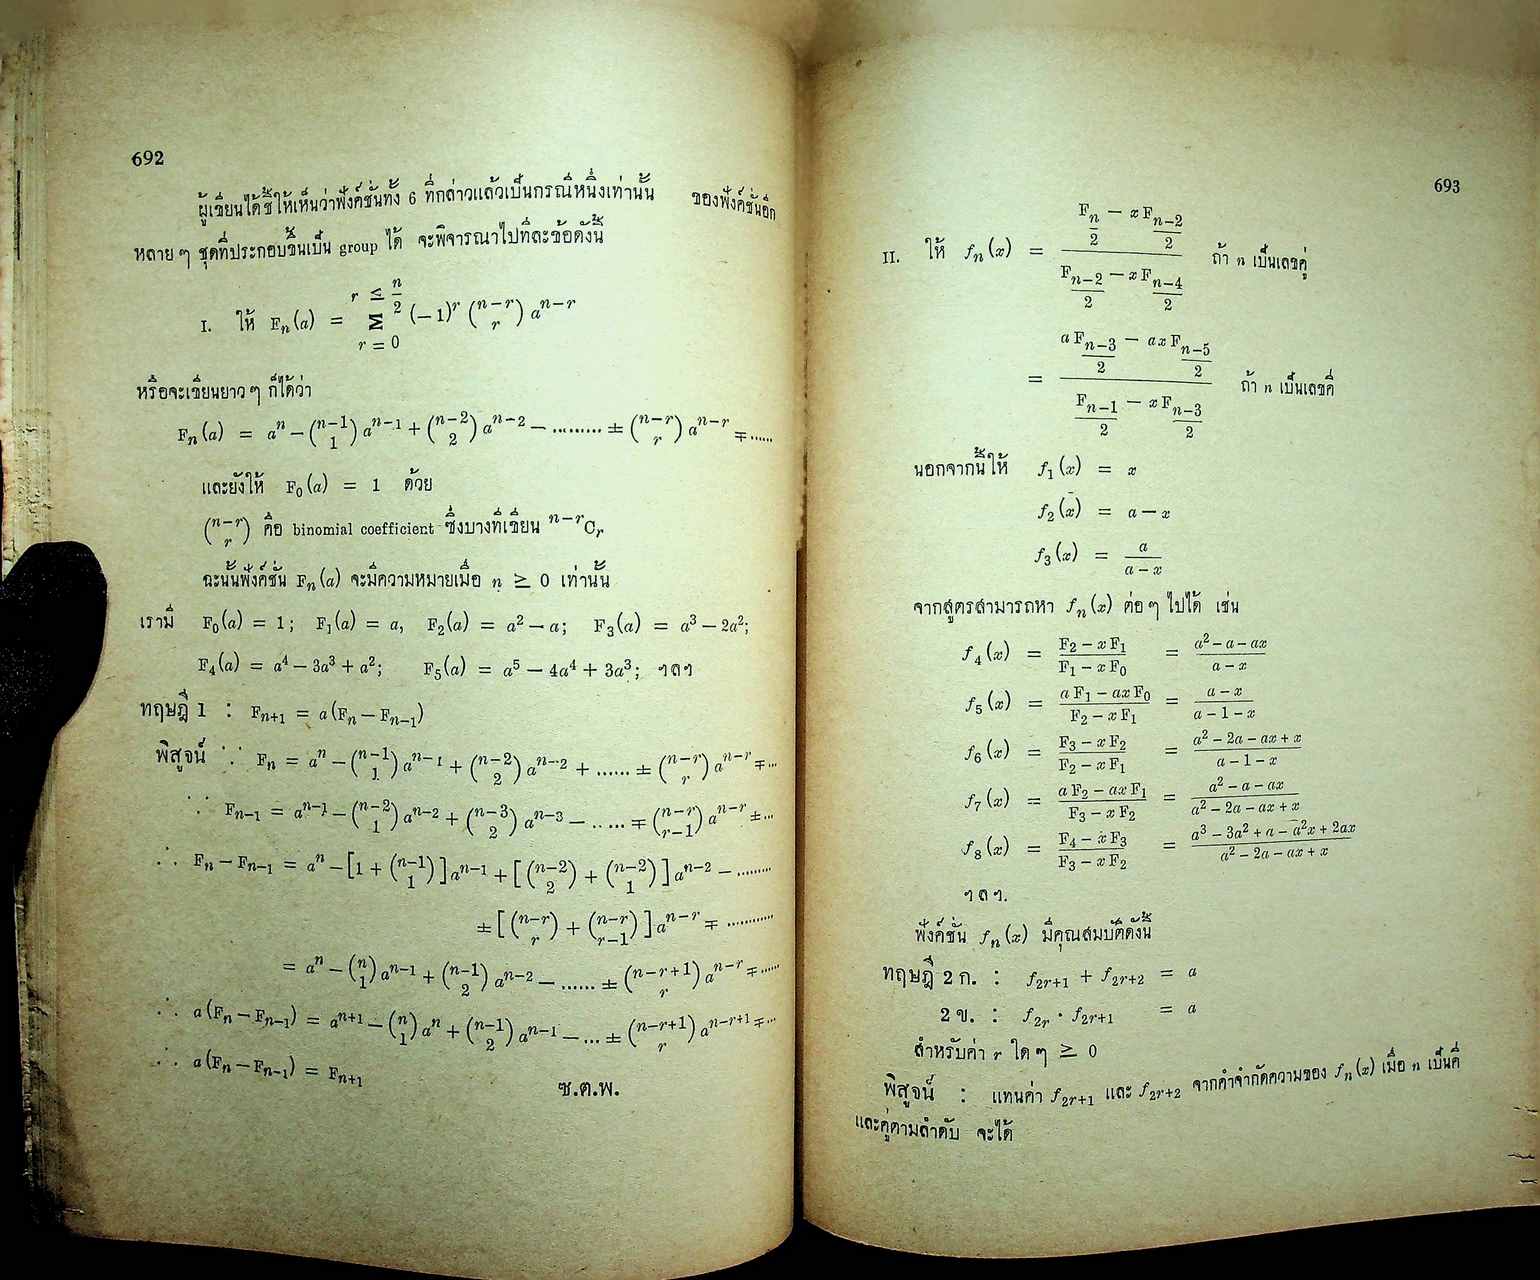 692
ผู้เขียนได้ชี้ให้เห็นว่าฟังค์ชั่นทั้ง 6 ที่กล่าวแล้วเป็นกรณีหนึ่งเท่านั้น ของฟังค์ชั่นอีก
หลาย ๆ ชุดที่ประกอบขึ้นเป็น group ได้ จะพิจารณาไปทีละข้อดังนี้
I. ให้ Fₙ(a) = Σ_{r=0}^{r ≤ n/2} (−1)^r (n−r choose r) a^{n−r}
หรือจะเขียนยาว ๆ ก็ได้ว่า
Fₙ(a) = a^n − (n−1 choose 1) a^{n−1} + (n−2 choose 2) a^{n−2} − ......... ± (n−r choose r) a^{n−r} ∓ ......
และยังให้ F₀(a) = 1 ด้วย
(n−r choose r) คือ binomial coefficient ซึ่งบางทีเขียน ^{n−r}C_r
ฉะนั้นฟังค์ชั่น Fₙ(a) จะมีความหมายเมื่อ n ≥ 0 เท่านั้น
เรามี F₀(a) = 1; F₁(a) = a, F₂(a) = a² − a; F₃(a) = a³ − 2a²;
F₄(a) = a⁴ − 3a³ + a²; F₅(a) = a⁵ − 4a⁴ + 3a³; ฯลฯ
ทฤษฎี 1 : F_{n+1} = a(F_n − F_{n−1})
พิสูจน์ ∵ F_n = a^n − (n−1 choose 1) a^{n−1} + (n−2 choose 2) a^{n−2} + ...... ± (n−r choose r) a^{n−r} ∓ ...
∵ F_{n−1} = a^{n−1} − (n−2 choose 1) a^{n−2} + (n−3 choose 2) a^{n−3} − ...... ∓ (n−r choose r−1) a^{n−r} ± ...
∴ F_n − F_{n−1} = a^n − [1 + (n−1 choose 1)] a^{n−1} + [(n−2 choose 2) + (n−2 choose 1)] a^{n−2} − ........
± [(n−r choose r) + (n−r choose r−1)] a^{n−r} ∓ ...........
= a^n − (n choose 1) a^{n−1} + (n−1 choose 2) a^{n−2} − ...... ± (n−r+1 choose r) a^{n−r} ∓ ......
∴ a(F_n − F_{n−1}) = a^{n+1} − (n choose 1) a^n + (n−1 choose 2) a^{n−1} − ... ± (n−r+1 choose r) a^{n−r+1} ∓ ...
∴ a(F_n − F_{n−1}) = F_{n+1}
ซ.ต.พ.
693
II. ให้ f_n(x) = (F_{n/2} − xF_{(n−2)/2}) / (F_{(n−2)/2} − xF_{(n−4)/2}) ถ้า n เป็นเลขคู่
= (aF_{(n−3)/2} − axF_{(n−5)/2}) / (F_{(n−1)/2} − xF_{(n−3)/2}) ถ้า n เป็นเลขคี่
นอกจากนี้ให้ f₁(x) = x
f₂(x) = a − x
f₃(x) = a / (a − x)
จากสูตรสามารถหา f_n(x) ต่อ ๆ ไปได้ เช่น
f₄(x) = (F₂ − xF₁) / (F₁ − xF₀) = (a² − a − ax) / (a − x)
f₅(x) = (aF₁ − axF₀) / (F₂ − xF₁) = (a − x) / (a − 1 − x)
f₆(x) = (F₃ − xF₂) / (F₂ − xF₁) = (a² − 2a − ax + x) / (a − 1 − x)
f₇(x) = (aF₂ − axF₁) / (F₃ − xF₂) = (a² − a − ax) / (a² − 2a − ax + x)
f₈(x) = (F₄ − xF₃) / (F₃ − xF₂) = (a³ − 3a² + a − a²x + 2ax) / (a² − 2a − ax + x)
ฯลฯ.
ฟังค์ชั่น f_n(x) มีคุณสมบัติดังนี้
ทฤษฎี 2 ก. : f_{2r+1} + f_{2r+2} = a
2 ข. : f_{2r} · f_{2r+1} = a
สำหรับค่า r ใด ๆ ≥ 0
พิสูจน์ : แทนค่า f_{2r+1} และ f_{2r+2} จากคำจำกัดความของ f_n(x) เมื่อ n เป็นคี่
และคู่ตามลำดับ จะได้